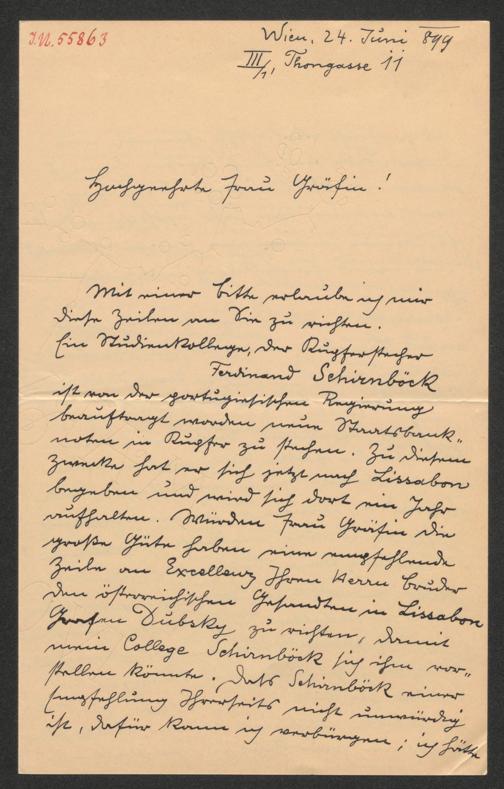 I.N. 55863
Wien, 24. Juni 899
III/1, Thongasse 11
Hochgeehrte Frau Gräfin!
Mit einer Bitte erlaube ich mir
diese Zeilen an Sie zu richten.
Ein Studienkollege, der Kupferstecher
Ferdinand Schirnböck
ist von der portugiesischen Regierung
beauftragt worden neue Staatsbank-
noten in Kupfer zu stechen. Zu diesem
Zwecke hat er sich jetzt nach Lissabon
begeben und wird sich dort ein Jahr
aufhalten. Würden Frau Gräfin die
große Güte haben eine empfehlende
Zeile an Excellenz Ihren Herrn Bruder
den österreichischen Gesandten in Lissabon
Grafen Dubsky zu richten, damit
mein College Schirnböck sich ihm vor-
stellen könnte. Dass Schirnböck einer
Empfehlung Ihrerseits nicht unwürdig
ist, dafür kann ich verbürgen; ich hätte